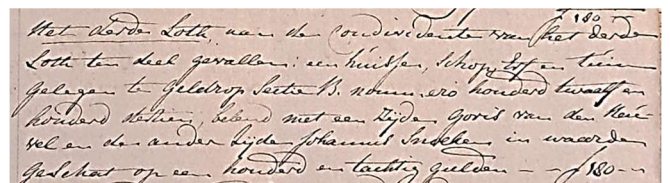 180
Het derde Loth, aan de condividente van het derde
Loth ten deel gevallen: een huisje, Schop, Erf en tuin
gelegen te Geldrop Sectie B. nommero honderd twaalf en
honderd dertien, belend met een Zijde Goris van den Heu-
vel en de ander Zijde Johannis Snoeken in waarde
geschat op een honderd en tachtig gulden - - ƒ 180 - "